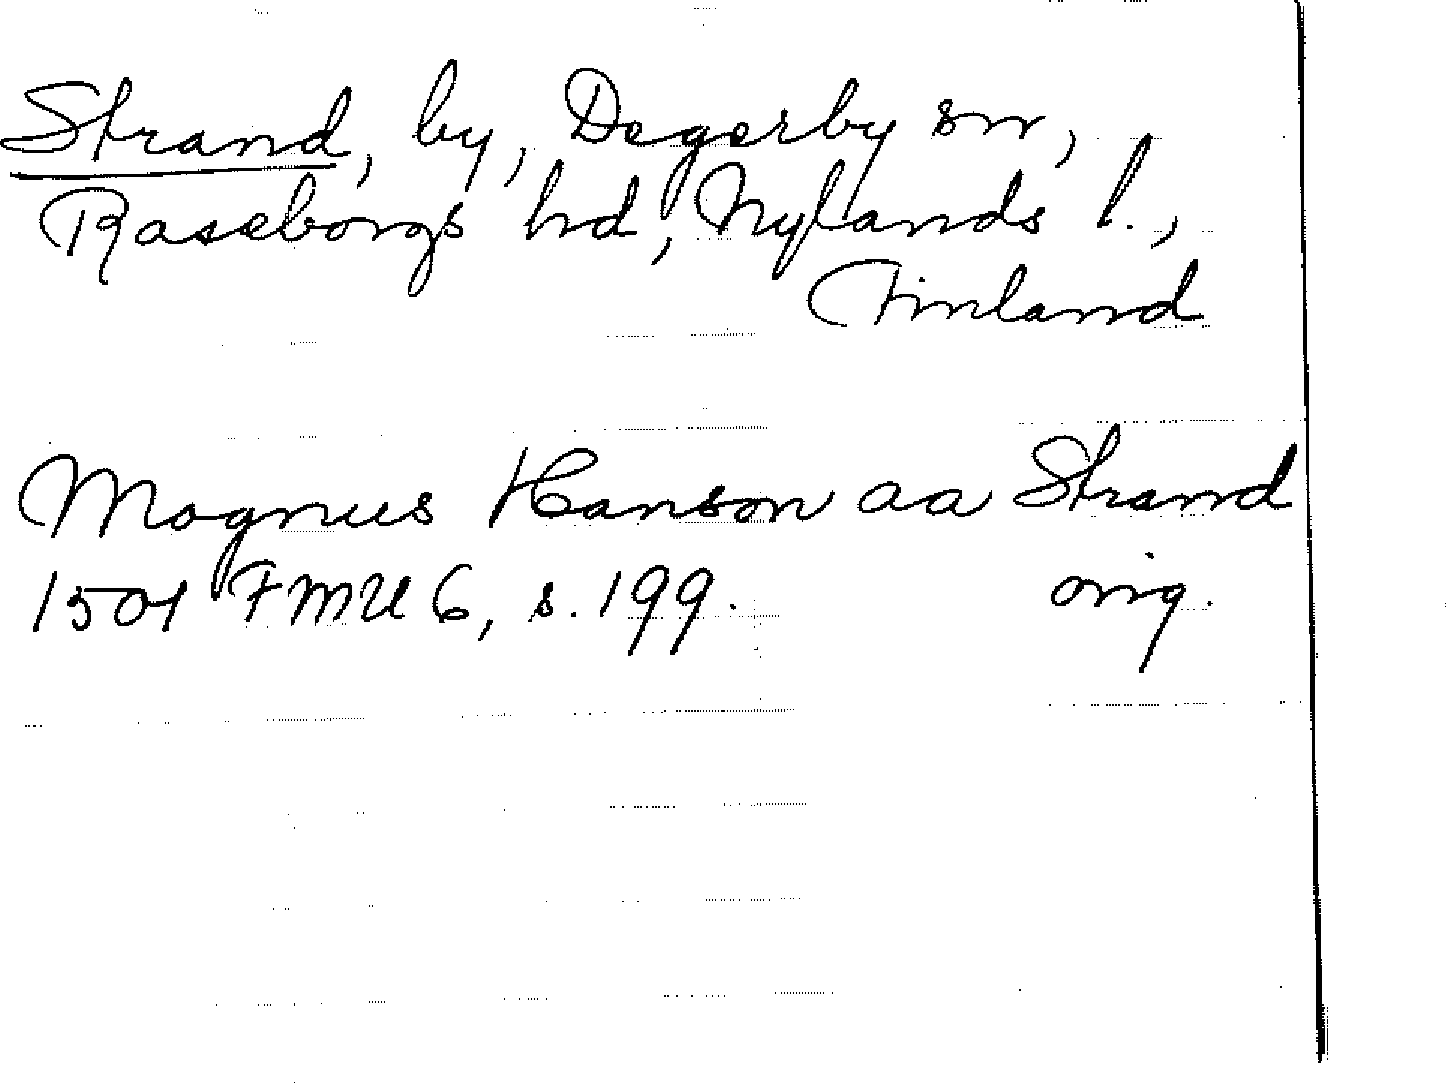 Strand, by, Degerby sn,
Raseborgs hd, Nylands l.,
Finland
Magnus Hanson aa Strand
1501 FMU 6, s. 199. orig.